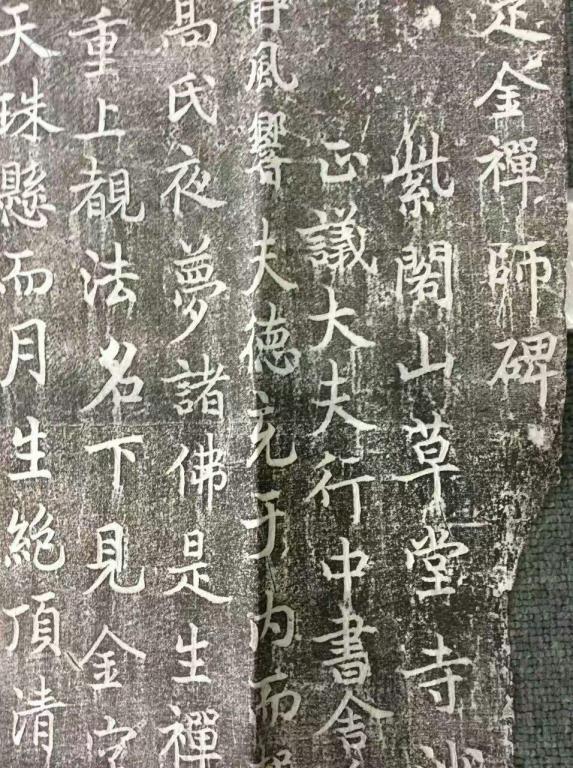 定金禪師碑
紫閣山草堂寺
正議大夫行中書舍
靜風響夫德充于內而
高氏夜夢諸佛是生禪
重上覩法名下見金
天珠懸而月生絶頂清